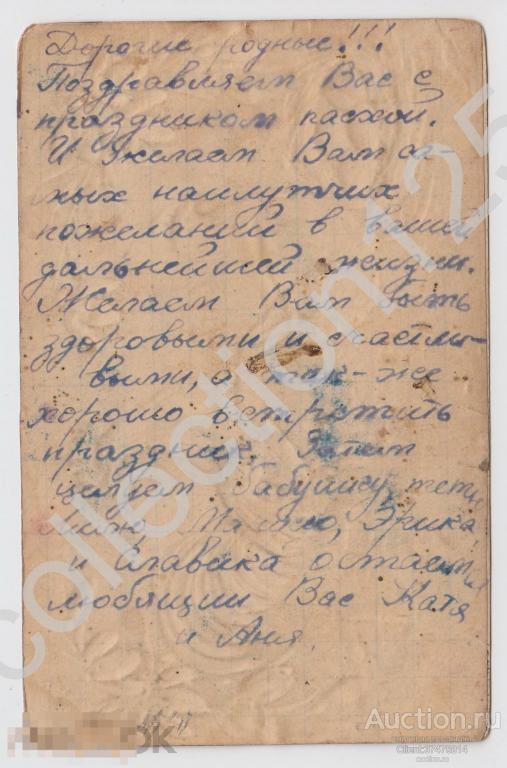 Дорогие родные!!!
Поздравляем Вас с
праздником пасхой.
И желаем Вам са-
мых наилутших
пожеланий в вашей
дальнейшей жизни.
Желаем Вам быть
здоровыми и счастли-
выми, а так-же
хорошо встретить
праздник. Затем
целуем бабушку, тетю
Милю, Эрика
и Славика остаемся
любящии Вас Катя
и Аня.
collection125
Auction.ru
Client:37479914